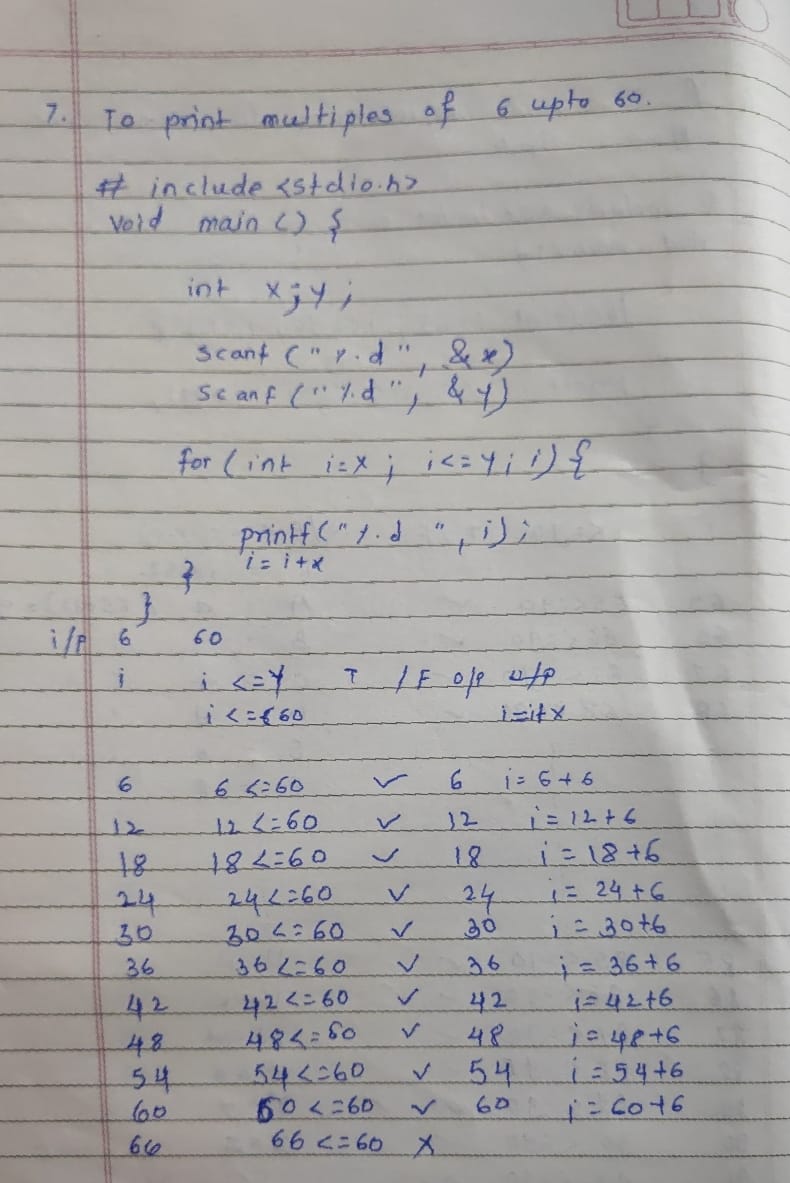 7. To print multiples of 6 upto 60.
# include <stdio.h>
void main () {
int x;y;
scanf ("%d", &x)
scanf ("%d", &y)
for (int i=x; i<=y; i) {
printf("%d ", i);
i = i+x
}
}
i/p 6 60
i i <=y T /F o/p u/p
i <= 60 i=i+x
6 6 <=60 ✓ 6 i= 6+6
12 12 <=60 ✓ 12 i= 12+6
18 18 <=60 ✓ 18 i = 18+6
24 24 <=60 ✓ 24 i= 24+6
30 30 <= 60 ✓ 30 i = 30+6
36 36 <=60 ✓ 36 i = 36+6
42 42 <=60 ✓ 42 i= 42+6
48 48 <=60 ✓ 48 i= 48+6
54 54 <=60 ✓ 54 i = 54+6
60 60 <=60 ✓ 60 i = 60+6
66 66 <=60 X